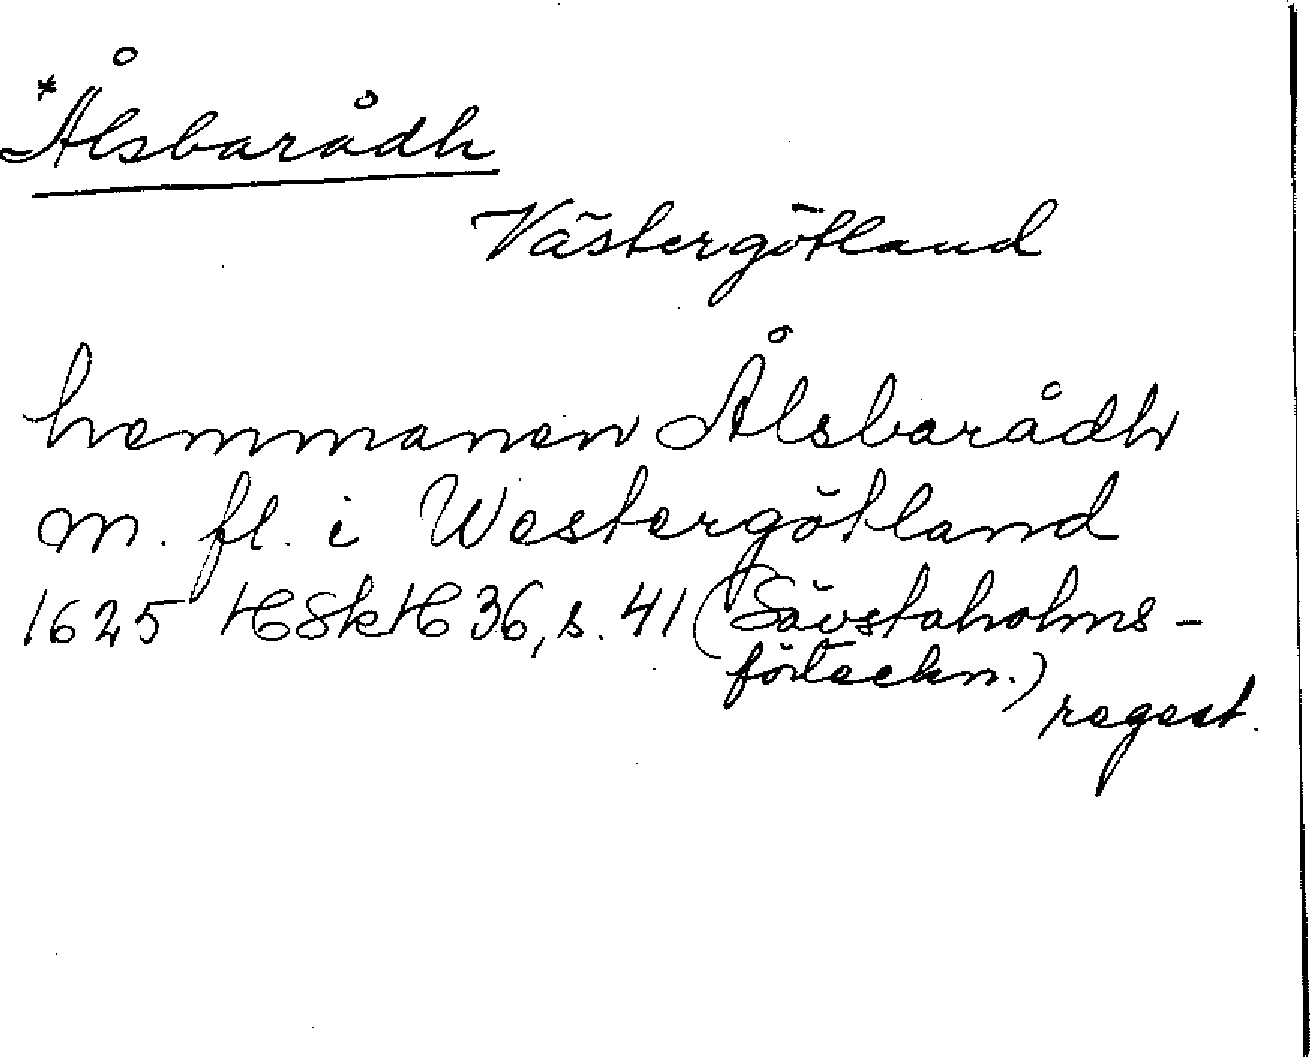 *Ålsbarådh
Västergötland
hemmanen Ålsbarådh
m. fl. i Westergötland
1625 HSkH 36, s. 41 (Sävstaholms-
förteckn.)
regest.